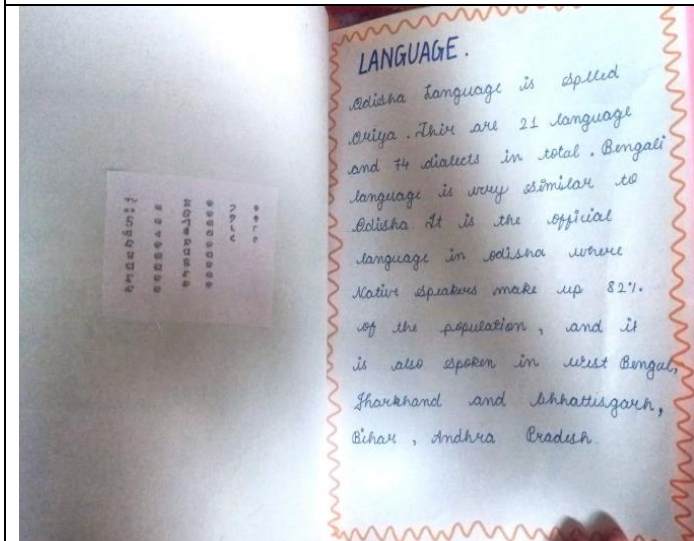 LANGUAGE.
Odisha Language is splled
Oriya. Thir are 21 language
and 74 dialects in total. Bengali
language is very similar to
Odisha. It is the official
language in odisha where
Native speakers make up 82%.
of the population, and it
is also spoken in west Bengal,
Jharkhand and Chhattisgarh,
Bihar, Andhra Pradesh.